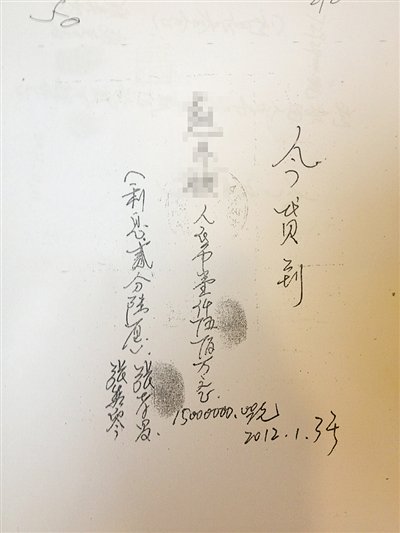 今贷到
人民币壹仟伍佰万元
15000000.00元
(利息贰分陆厘)
2012.1.3号